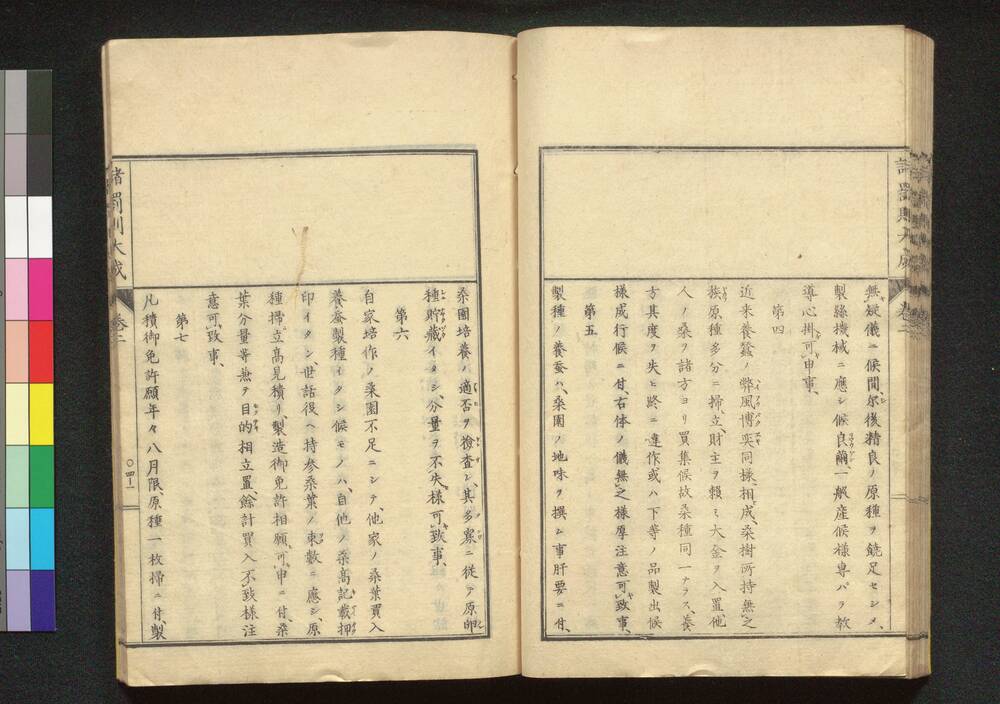 無之儀ニ候間、爾後精良ノ原種ヲ饒足セシメ、
製絲機械ニ應シ候良繭一般産候様専パラ教
導心掛可申事、
第四
近来養蚕ノ弊風博奕同様、相成、桑樹所持無之
族、原種多分ニ掃立、財主ヲ頼ミ、大金ヲ入置、他
人ノ桑ヲ諸方ヨリ買集候故、桑種同一ナラス、養
方其度ヲ失ヒ、終ニ違作或ハ下等ノ品製出候
様成行候ニ付、右体ノ儀無之様厚注意可致事、
第五
製種ノ養蚕ハ、桑園ノ地味ヲ撰ミ事肝要ニ付、
桑園培養ノ適否ヲ檢査シ、其多寡ニ従ヒ原卵
種貯藏イタシ、分量ヲ不失様可致事、
第六
自家培作ノ桑園不足ニシテ、他家ノ桑葉買入
養蚕製種イタシ候モノハ、自他ノ桑高記載押
印イタシ、世話役ヘ持参、桑葉ノ束數ニ應シ、原
種掃立高見積リ、製造御免許相願可申ニ付、桑
葉分量等兼テ目的相立置、餘計買入不致様注
意可致事、
第七
凡積御免許願年々八月限、原種一枚掃ニ付、製
諸罰則大成
巻二
〇四一
諸罰則大成
巻二